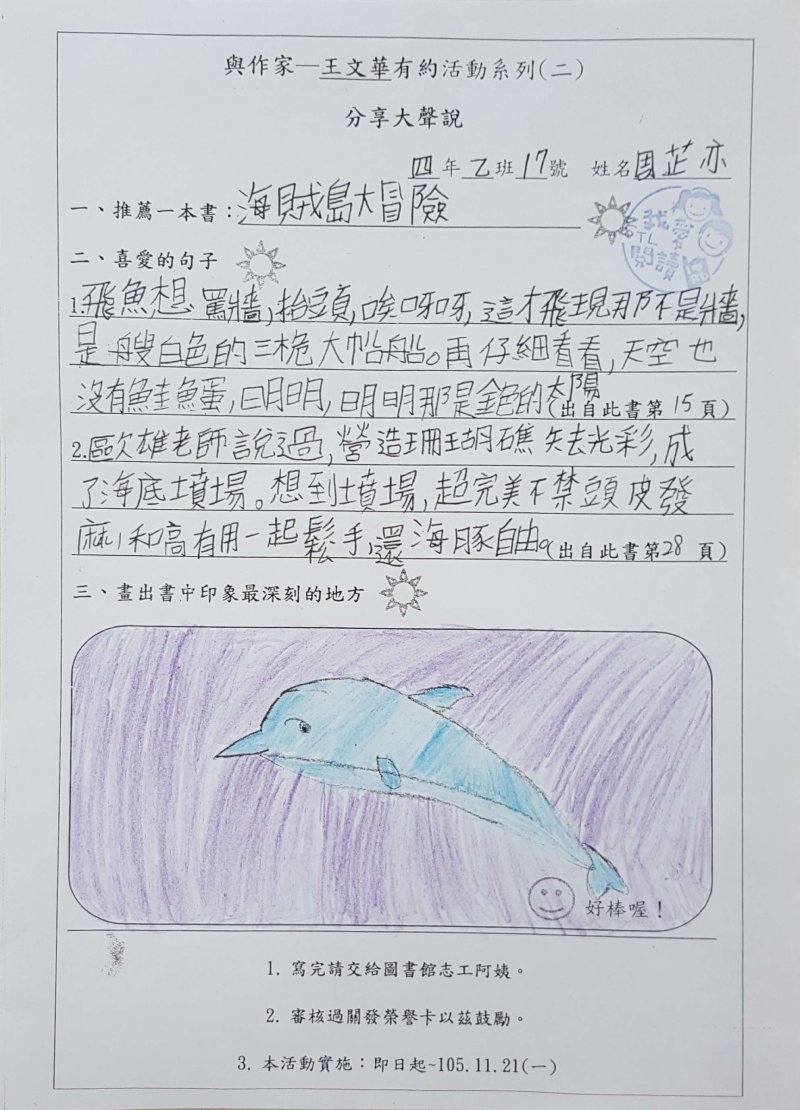 與作家—王文華有約活動系列(二)
分享大聲說
四年乙班17號 姓名周芷亦
一、推薦一本書：海賊島大冒險
我愛
STL
閱讀
二、喜愛的句子
1.飛魚想罵牆,抬頭,唉呀呀,這才飛現那不是牆,
是艘白色的三桅大帆船。再仔細看看,天空也
沒有鮭魚蛋,明明,明明那是金色的太陽(出自此書第15頁)
2.歐雄老師說過,營造珊瑚礁失去光彩,成
了海底墳場。想到墳場,超完美不禁頭皮發
麻,和高有用一起鬆手,還海豚自由。(出自此書第28頁)
三、畫出書中印象最深刻的地方
好棒喔！
1. 寫完請交給圖書館志工阿姨。
2. 審核過關發榮譽卡以茲鼓勵。
3. 本活動實施：即日起~105.11.21(一)